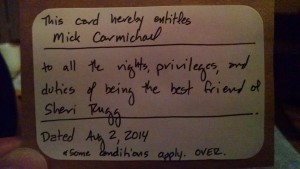 This card hereby entitles
Mick Carmichael
to all the rights, privileges, and
duties of being the best friend of
Sheri Rugg.
Dated Aug 2, 2014
*Some conditions apply. OVER.